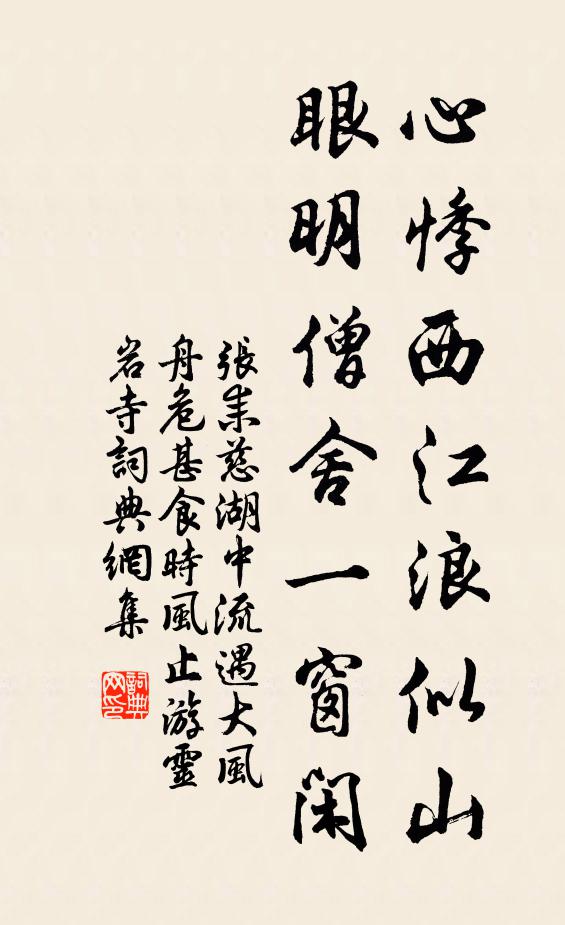 心悸西江浪似山
眼明僧舍一窗閑
張耒慈湖中流遇大風
舟危甚食時風止游靈
岩寺詞典網集
詞典网印